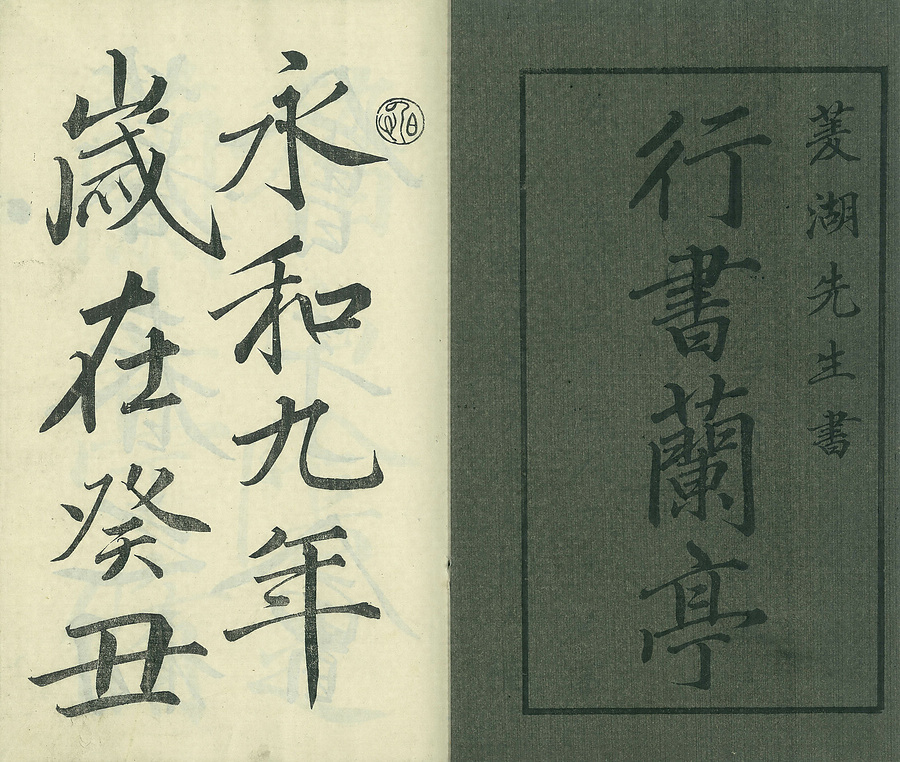 菱湖先生書
行書蘭亭
永和九年
歳在癸丑